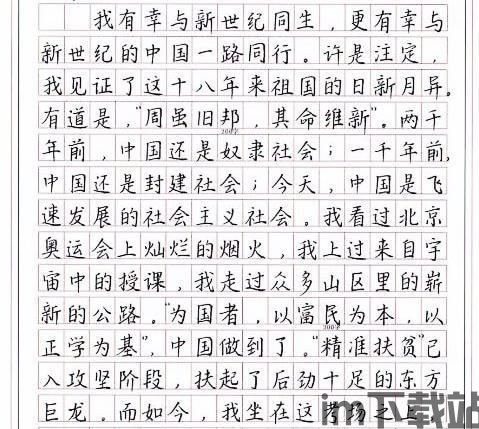 我有幸与新世纪同生，更有幸与
新世纪的中国一路同行。许是注定，
我见证了这十八年来祖国的日新月异。
有道是，“周虽旧邦，其命维新”。两千
200字
年前，中国还是奴隶社会；一千年前，
中国还是封建社会；今天，中国是飞
速发展的社会主义社会。我看过北京
奥运会上灿烂的烟火，我上过来自宇
宙中的授课，我走过众多山区里的崭
新的公路。“为国者，以富民为本，以
300字
正学为基”，中国做到了。“精准扶贫”已
入攻坚阶段，扶起了后劲十足的东方
巨龙。而如今，我坐在这考场之上
im下载站